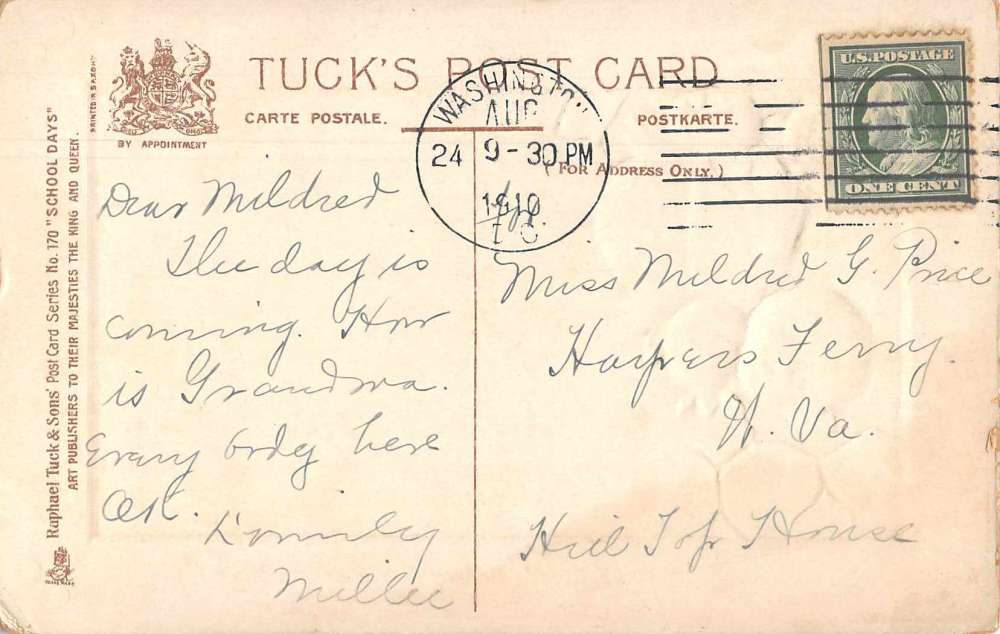 TUCK'S POST CARD
CARTE POSTALE.
POSTKARTE.
BY APPOINTMENT
(FOR ADDRESS ONLY.)
PRINTED IN SAXONY
Raphael Tuck & Sons' Post Card Series No. 170 "SCHOOL DAYS"
ART PUBLISHERS TO THEIR MAJESTIES THE KING AND QUEEN.
WASHINGTON
AUG
24 9-30 PM
1910
D C
U.S. POSTAGE
ONE CENT
Dear Mildred
The day is
coming. How
is Grandma.
Every body here
OK.
Millie
Miss Mildred G. Price
Harpers Ferry.
W. Va.
Hill Top House